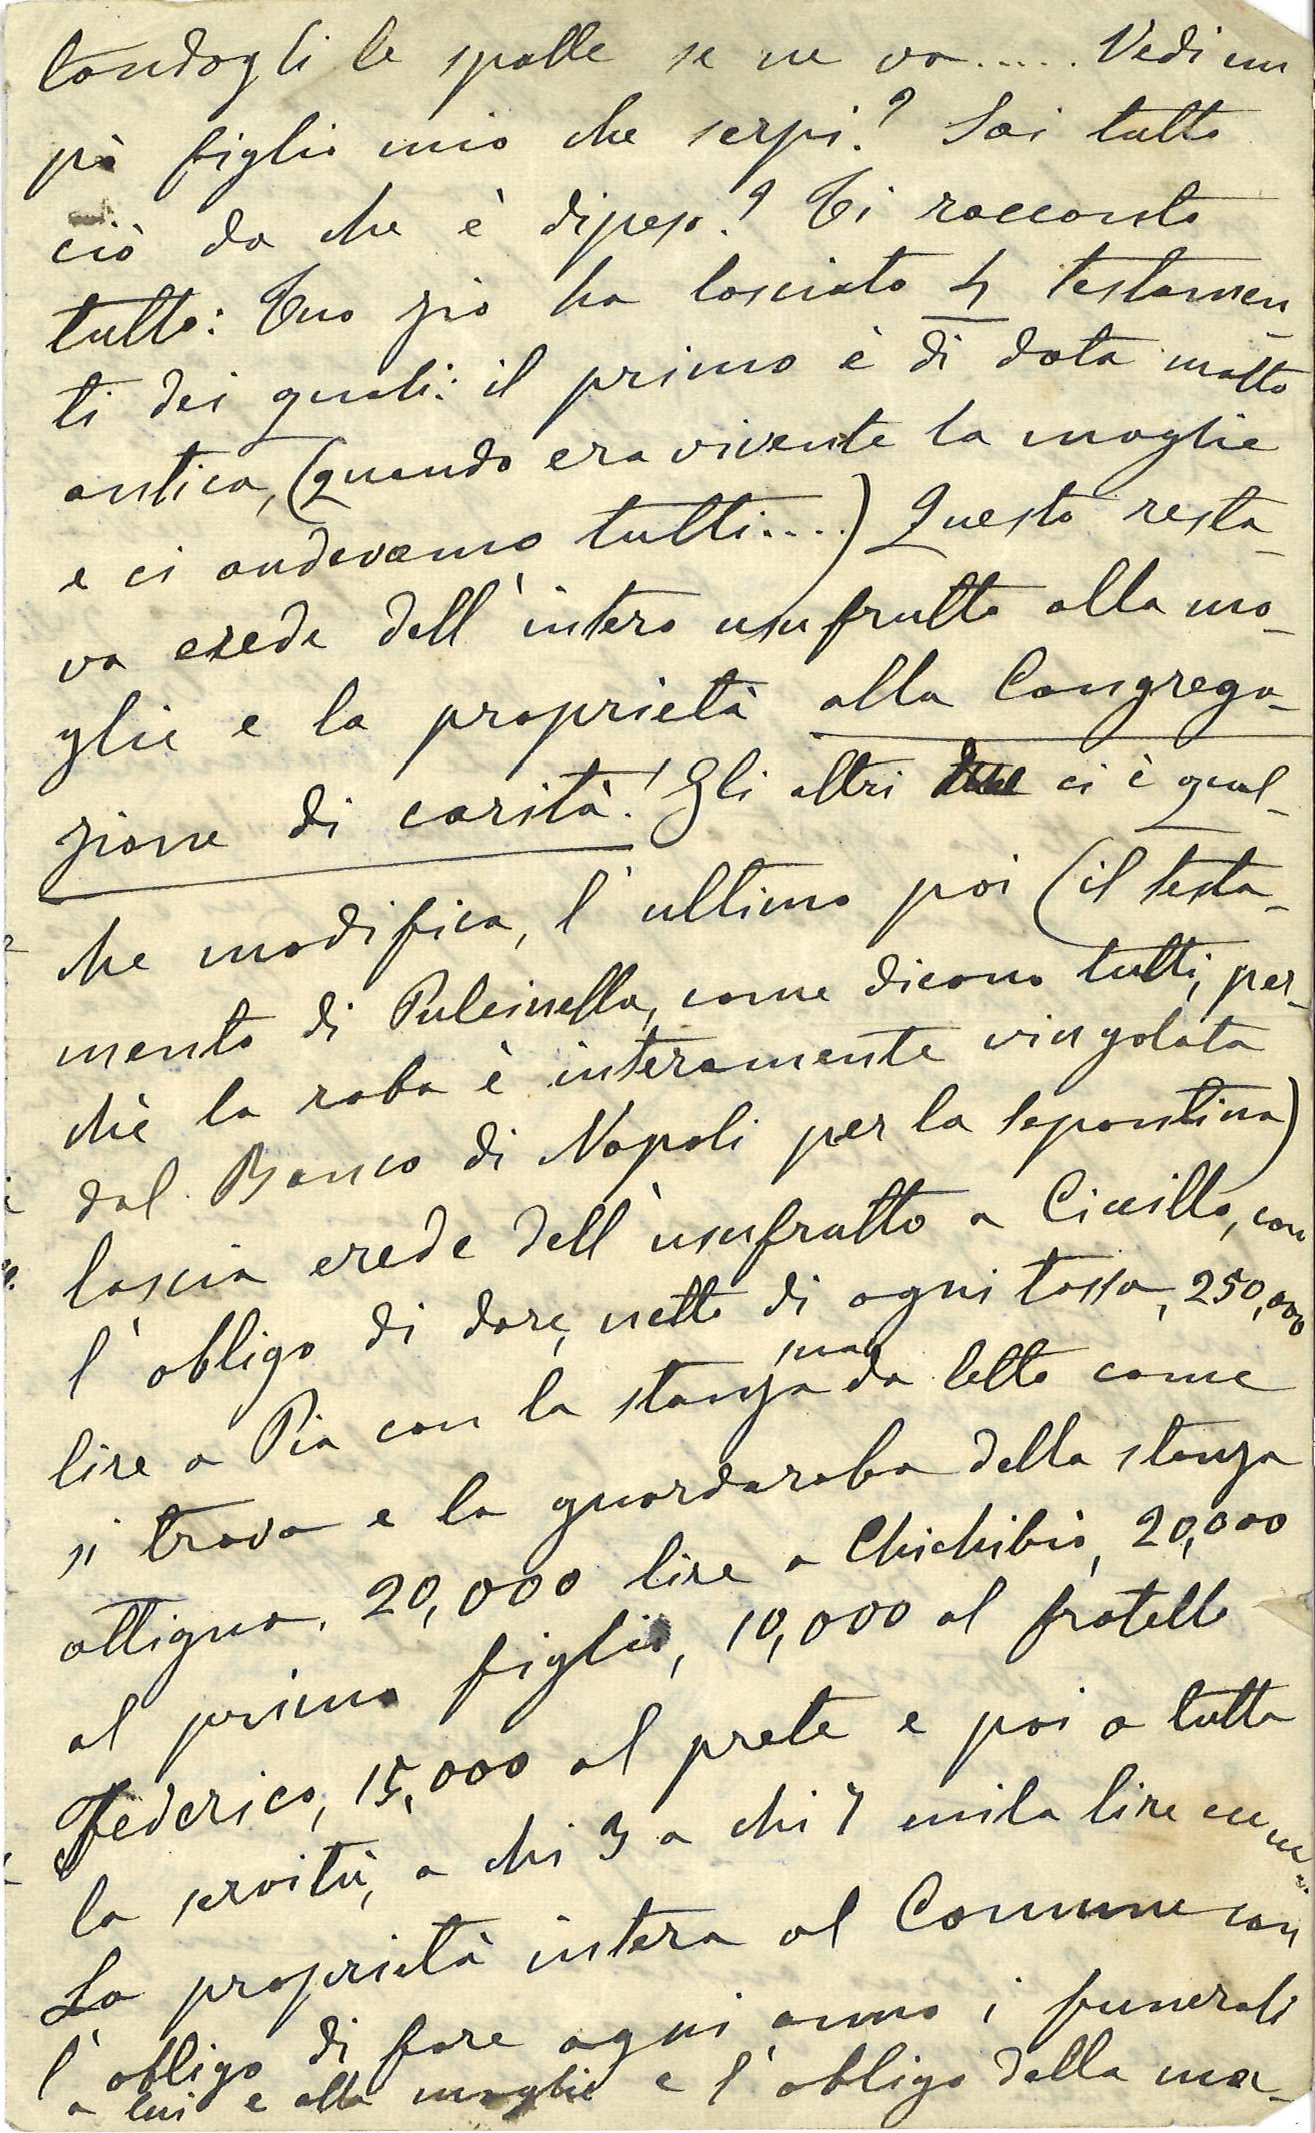 tandogli le spalle se ne va..... Vedi un
pò figlio mio che serpi? Sai tutto
ciò da che è dipeso? Ti racconto
tutto: Tuo zio ha lasciato 4 testamen
ti dei quali: il primo è di data molto
antica, (quando era vivente la moglie
e ci andavamo tutti....) Questo resta-
va erede dell'intero usufrutto alla mo-
glie e la proprietà alla Congrega-
zione di carità! Gli altri ci è qual-
che modifica, l'ultimo poi (il testa-
mento di Pulcinella, come dicono tutti, per-
chè la roba è interamente vingolata
dal Banco di Napoli per la sepontina)
lascia erede dell'usufrutto a Ciccillo, con
l'obligo di dare, netto di ogni tassa, 250,000
lire a Pia con la stanza sua da letto come
si trova e la guardaroba della stanza
attigua, 20,000 lire a Chichibio, 20,000
al primo figlio, 10,000 al fratello
Federico, 15,000 al prete e poi a tutta
la servitù, a chi 3 a chi 7 mila lire
La proprietà intera al Comune con
l'obligo di fare ogni anno i funerali
a lui e alla moglie e l'obligo della ma-